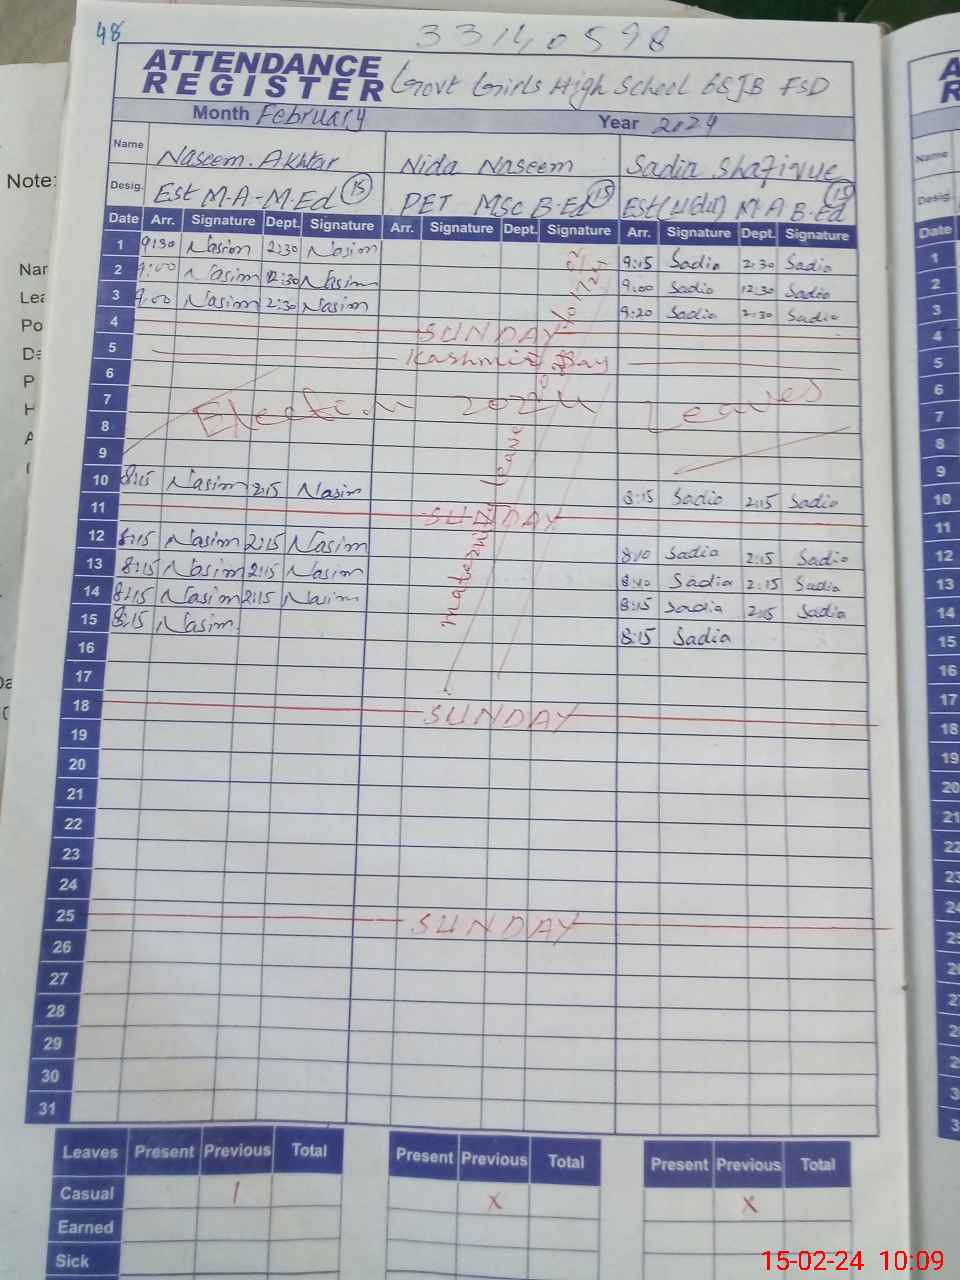 48
33140598
ATTENDANCE
REGISTER
Govt Girls High School 68JB FSD
Month February
Year 2024
Name Naseem Akhtar Nida Naseem Sadia Shafique
Desig. EST M.A-M.Ed 15 PET MSc B.Ed 15 EST M.A B.Ed 15
Date Arr. Signature Dept. Signature Arr. Signature Dept. Signature Arr. Signature Dept. Signature
1 9:30 Nasim 2:30 Nasim 9:15 Sadia 2:30 Sadia
2 9:00 Nasim 12:30 Nasim 9:00 Sadia 12:30 Sadia
3 9:00 Nasim 2:30 Nasim 9:20 Sadia 2:30 Sadia
4 SUNDAY
5 Kashmir Day
6
7 Election 2024 Leaves
8
9
10 8:15 Nasim 2:15 Nasim 8:15 Sadia 2:15 Sadia
11 SUNDAY
12 8:15 Nasim 2:15 Nasim 8:10 Sadia 2:15 Sadia
13 8:15 Nasim 2:15 Nasim 8:10 Sadia 2:15 Sadia
14 8:15 Nasim 2:15 Nasim 8:15 Sadia 2:15 Sadia
15 8:15 Nasim 8:15 Sadia
maternity leave
16
17
18 SUNDAY
19
20
21
22
23
24
25 SUNDAY
26
27
28
29
30
31
Leaves Present Previous Total Present Previous Total Present Previous Total
Casual 1 x x
Earned
Sick
Note:
Date
1
2
3
4
5
6
7
8
9
10
11
12
13
14
15
16
17
18
19
20
21
22
23
15-02-24 10:09